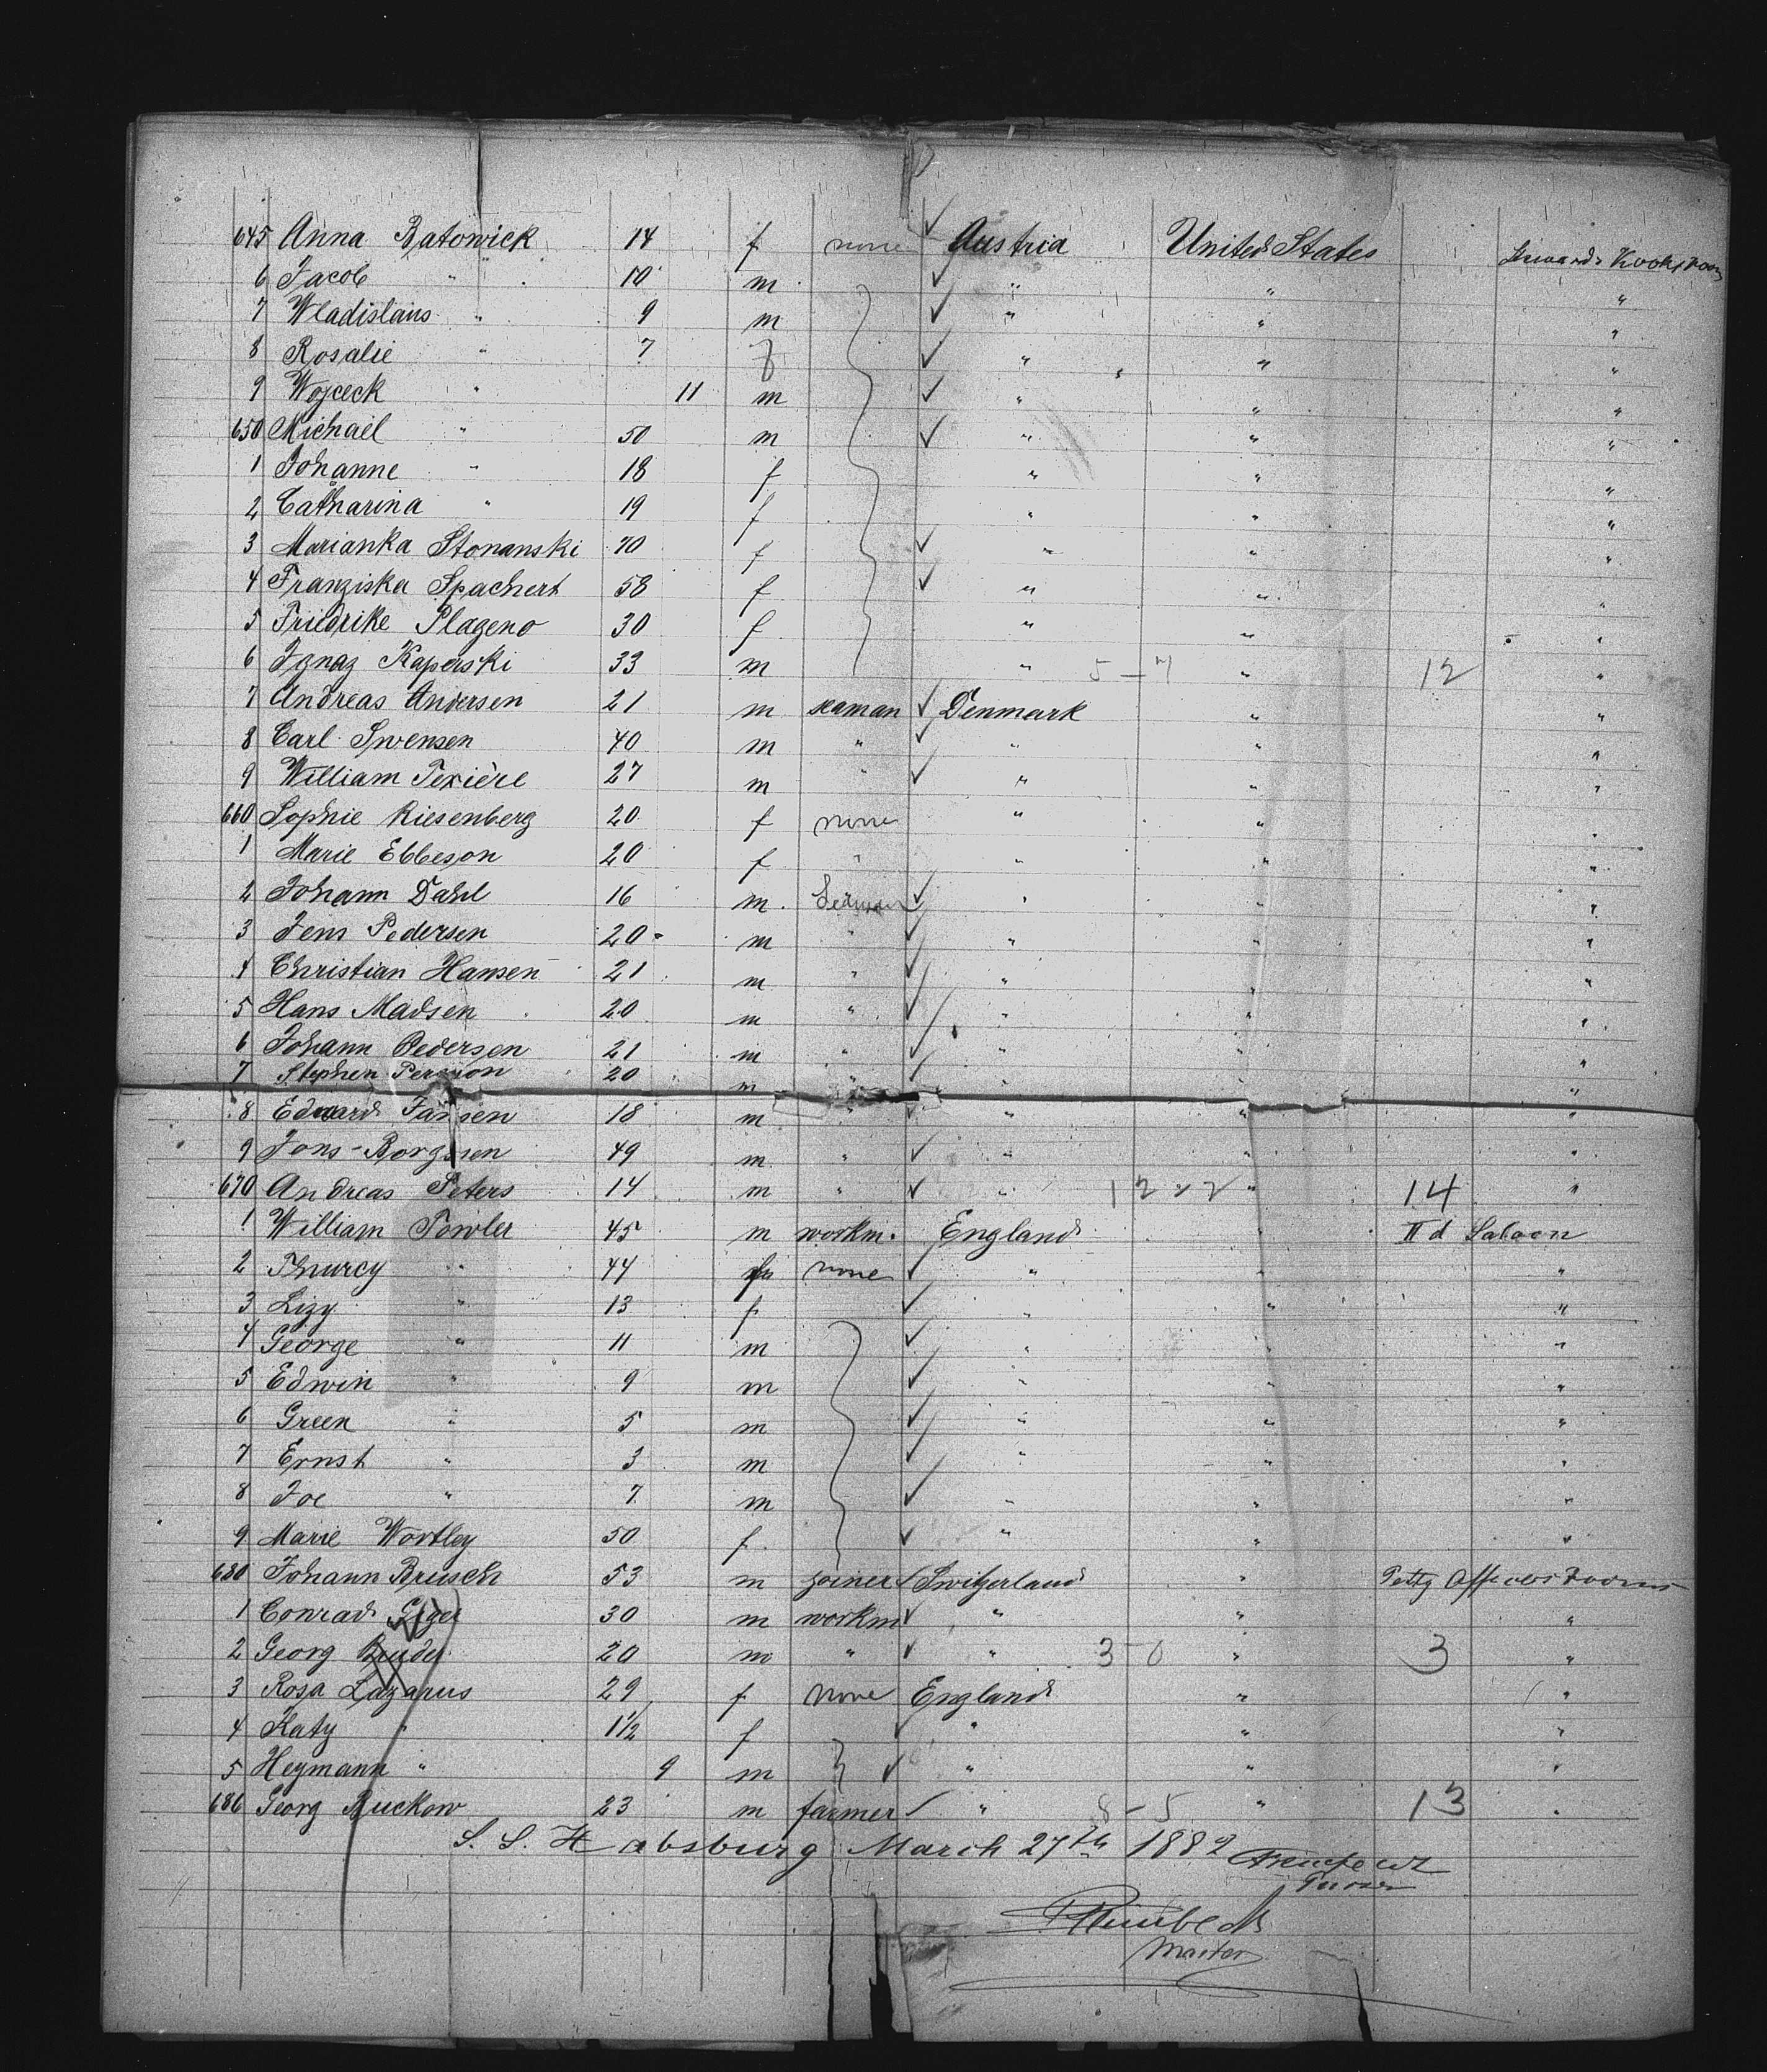 645 Anna Ratowick 14 f none Austria United States
6 Jacob " 10 m " " "
7 Wladislaus " 9 m " " "
8 Rosalie " 7 f " " "
9 Wojceck " 11 m " " "
650 Michael " 50 m " " "
1 Johanne " 18 f " " "
2 Catharina " 19 f " " "
3 Marianka Stonanski 70 f " " "
4 Franziska Spachert 58 f " " "
5 Friedrike Plageno 30 f " " "
6 Ignaz Kaperski 33 m " 5-7 " 12 "
7 Andreas Andersen 21 m seaman Denmark " "
8 Carl Swensen 40 m " " " "
9 William Texière 27 m " " " "
660 Sophie Riesenberg 20 f none " "
1 Marie Ebbeson 20 f " " " "
2 Johann Dahl 16 m " " "
3 Jens Pedersen 20 m " " " "
4 Christian Hansen 21 m " " " "
5 Hans Madsen 20 m " " " "
6 Johann Pedersen 21 m " " " "
7 Stephen Persson 20 m " " " "
8 Eduard Jansen 18 m " " " "
9 Jons Borgssen 49 m " " " "
670 Andreas Peters 14 m " " 12 " 2 " 14 "
1 William Fowler 45 m workm. England " IId Saloon
2 Thurcy " 44 f none " " "
3 Lizy " 13 f " " "
4 George " 11 m " " "
5 Edwin " 9 m " " "
6 Green " 5 m " " "
7 Ernst " 3 m " " "
8 Joe " 7 m " " "
9 Marie Wortley 50 f " " "
680 Johann Brusch 53 m joiner Switzerland " Petty Officers Rooms
1 Conrad Giger 30 m workm " " "
2 Georg 20 m " " 3-0 " 3 "
3 Rosa Lazarus 29 f none England " "
4 Katy " 1½ f " " "
5 Heymann " 9 m " " "
686 Georg Ruckow 23 m farmer " 8-5 " 13 "
S. S. Habsburg March 27th 1882
Purser
Master